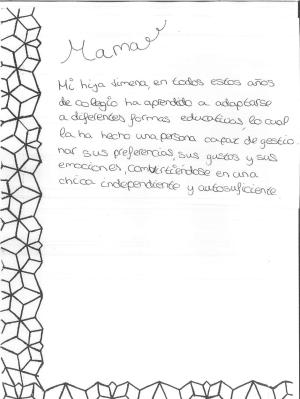 Mama
Mi hija Jimena, en todos estos años
de colegio ha aprendido a adaptarse
a diferentes formas educativas, lo cual
la ha hecho una persona capaz de gestio
nar sus preferencias, sus gustos y sus
emociones, combirtiéndose en una
chica independiente y autosuficiente.